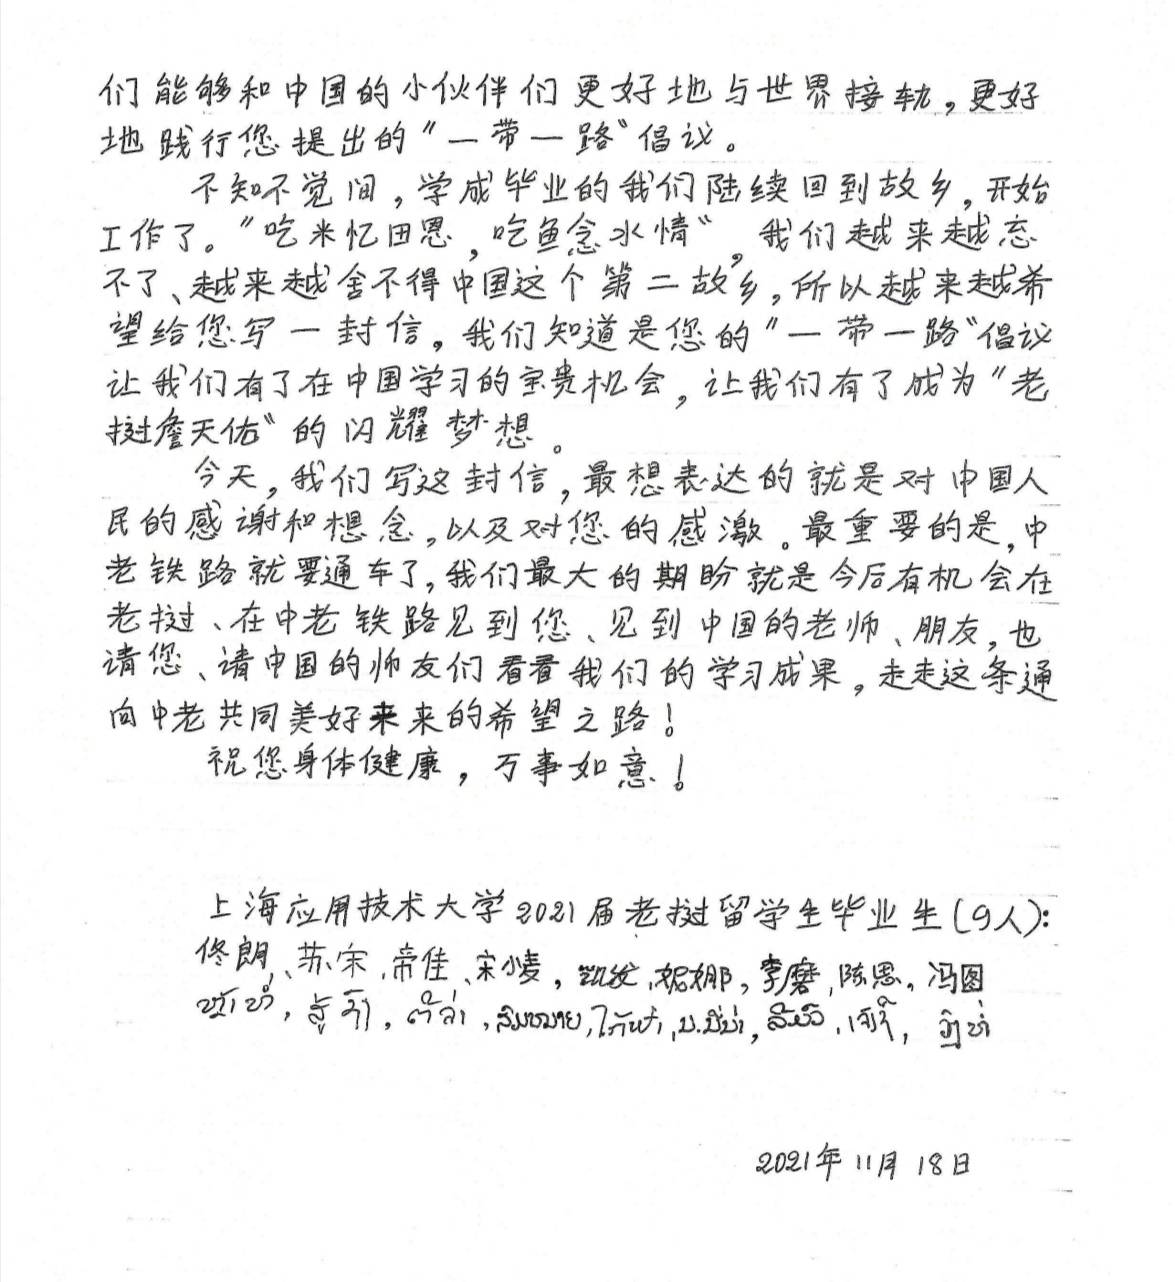 们能够和中国的小伙伴们更好地与世界接轨，更好
地践行您提出的“一带一路”倡议。
不知不觉间，学成毕业的我们陆续回到故乡，开始
工作了。“吃米忆田恩，吃鱼念水情”，我们越来越忘
不了、越来越舍不得中国这个第二故乡，所以越来越希
望给您写一封信。我们知道是您的“一带一路”倡议
让我们有了在中国学习的宝贵机会，让我们有了成为“老
挝詹天佑”的闪耀梦想。
今天，我们写这封信，最想表达的就是对中国人
民的感谢和想念，以及对您的感激。最重要的是，中
老铁路就要通车了，我们最大的期盼就是今后有机会在
老挝、在中老铁路见到您、见到中国的老师、朋友，也
请您、请中国的师友们看看我们的学习成果，走走这条通
向中老共同美好来来的希望之路！
祝您身体健康，万事如意！
上海应用技术大学2021届老挝留学生毕业生(9人)：
佟朗、苏宋、帝佳、宋小麦，凯发，妮娜，李磨，陈恩，冯图
2021年11月18日